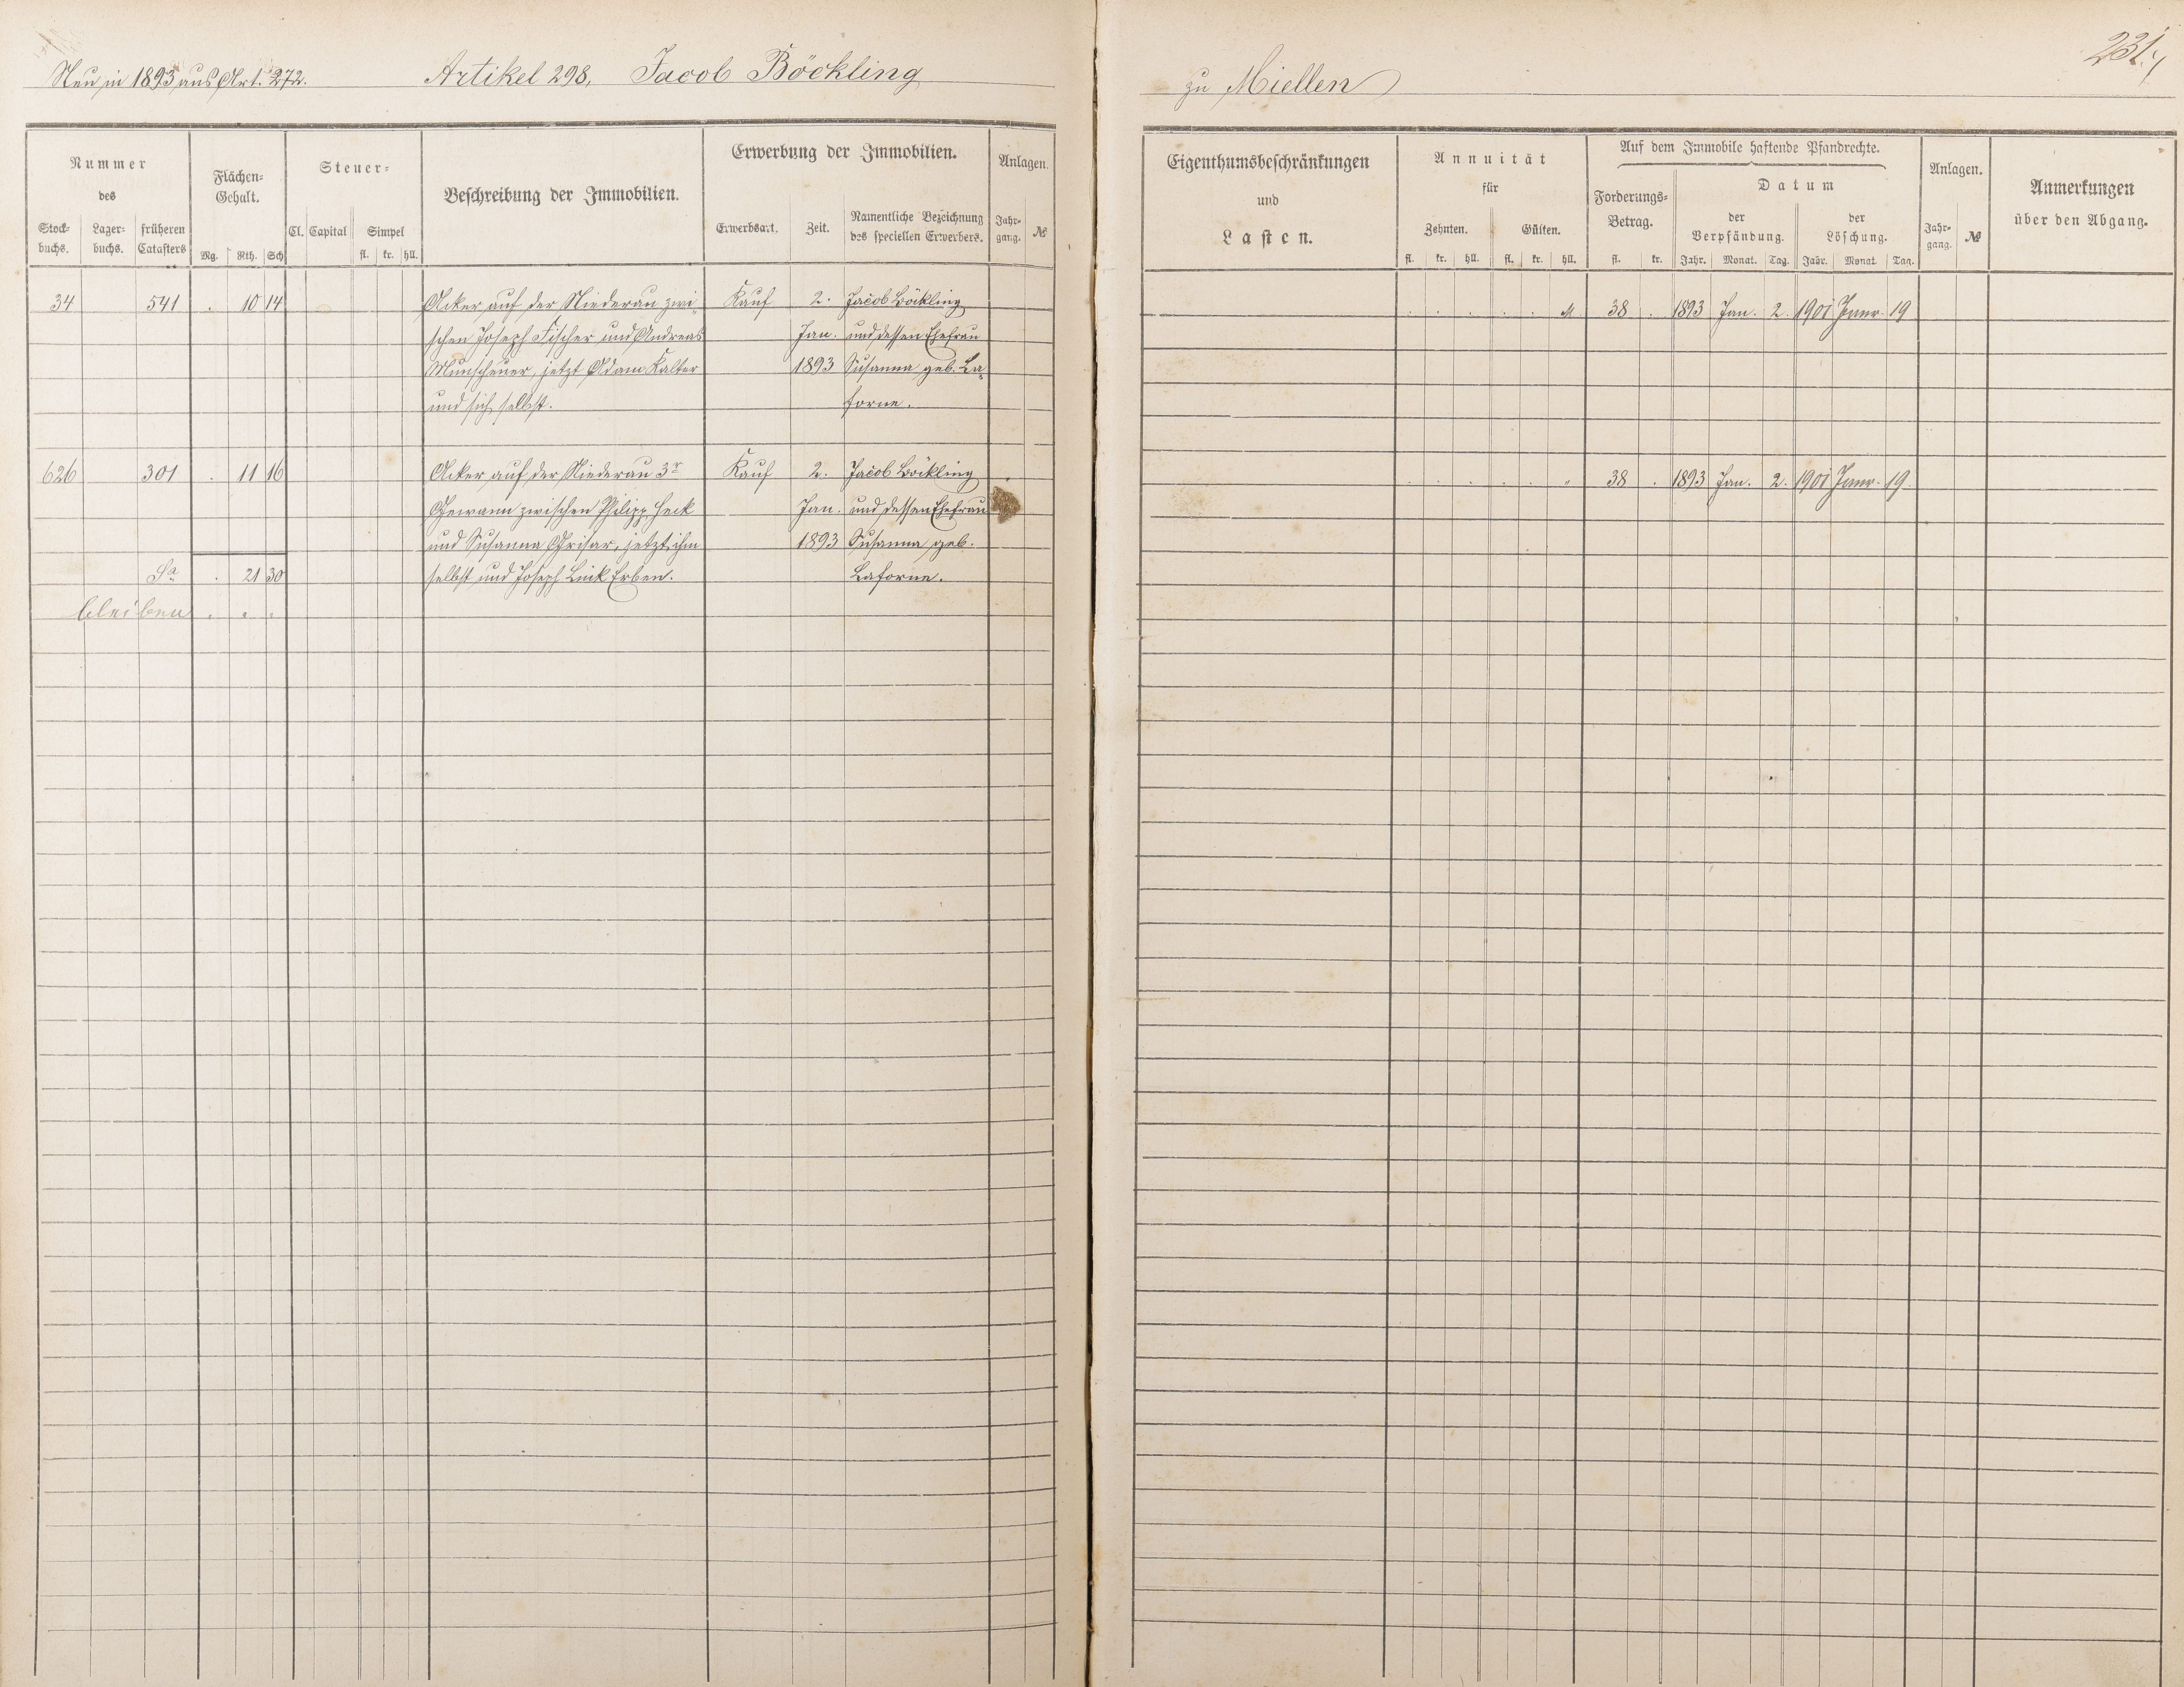 Neu in 1893 aus Art. 272.
Artikel 298, Jacob Böckling
Nummer
des
Stock-
buchs.
Lager-
buchs.
früheren
Catasters
Flächen-
Gehalt.
Mg. Rth. Sch
Steuer-
Cl. Capital Simpel
fl. kr. hll.
Beschreibung der Immobilien.
Erwerbung der Immobilien.
Erwerbsart. Zeit. Namentliche Bezeichnung
des speciellen Erwerbers.
Anlagen.
Jahr-
gang.
№
34 541 . 10 14 Acker auf der Niederau zwi- Kauf 2. Jacob Böckling
schen Joseph Fischer und Andreas Jan. und dessen Ehefrau
Munscheuer, jetzt Adam Kalter 1893 Susanna geb. La-
und sich selbst. forne.
626 301 . 11 16 Acker auf der Niederau 3r Kauf 2. Jacob Böckling
Gewann zwischen Philipp Heck Jan. und dessen Ehefrau
und Susanna Grisar, jetzt ihm 1893 Susanna geb.
Sa . 21 30 selbst und Joseph Linck Erben. Laforne.
bleiben . . .
231.
zu Miellen
Eigenthumsbeschränkungen
und
Lasten.
Annuität
für
Zehnten. Gülten.
fl. kr. hll. fl. kr. hll.
Auf dem Immobile haftende Pfandrechte.
Forderungs-
Betrag.
fl. kr.
Datum
der
Verpfändung.
Jahr. Monat. Tag.
der
Löschung.
Jahr. Monat Tag.
Anlagen.
Jahr-
gang.
№
Anmerkungen
über den Abgang.
. . . . . M 38 . 1893 Jan. 2. 1901 Janr. 19
. . . . . " 38 . 1893 Jan. 2. 1901 Janr. 19.